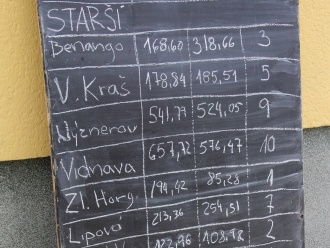 STARŠÍ
Benango 168,60 318,66 3
V. Kraš 178,84 185,51 5
Vyznerov 541,79 524,05 9
Vidnava 657,72 576,47 10
Zl. Hory 194,42 85,28 1
Lipová 213,36 254,51 7
122,96 103,98 2